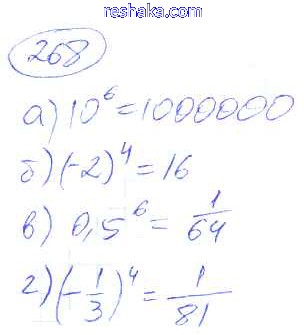 reshaka.com
268
а) 10⁶ = 1000000
б) (-2)⁴ = 16
в) 0,5⁶ = 1/64
г) (-1/3)⁴ = 1/81